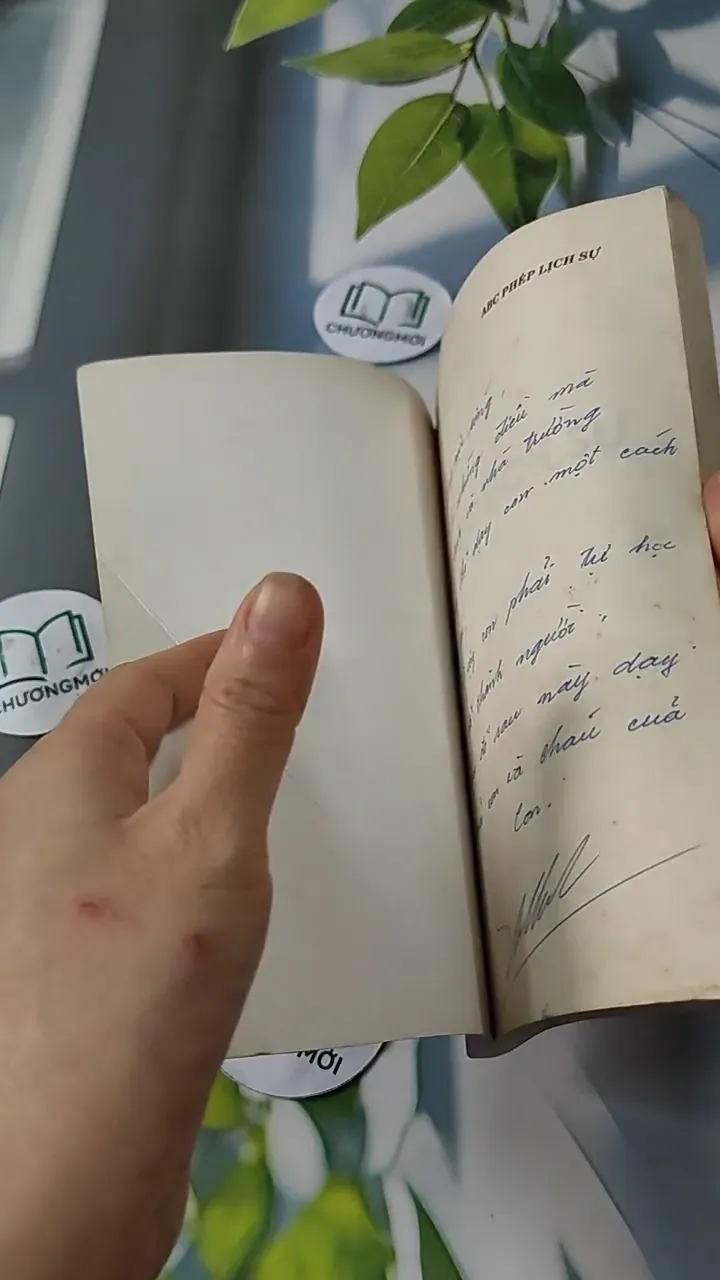 CHƯƠNGMỚI
ABC PHÉP LỊCH SỰ
điều mà
nhà trường
dạy con một cách
con phải tự học
thành người.
sau này dạy
và cháu của
con.
CHƯƠNGMỚI
MỚI